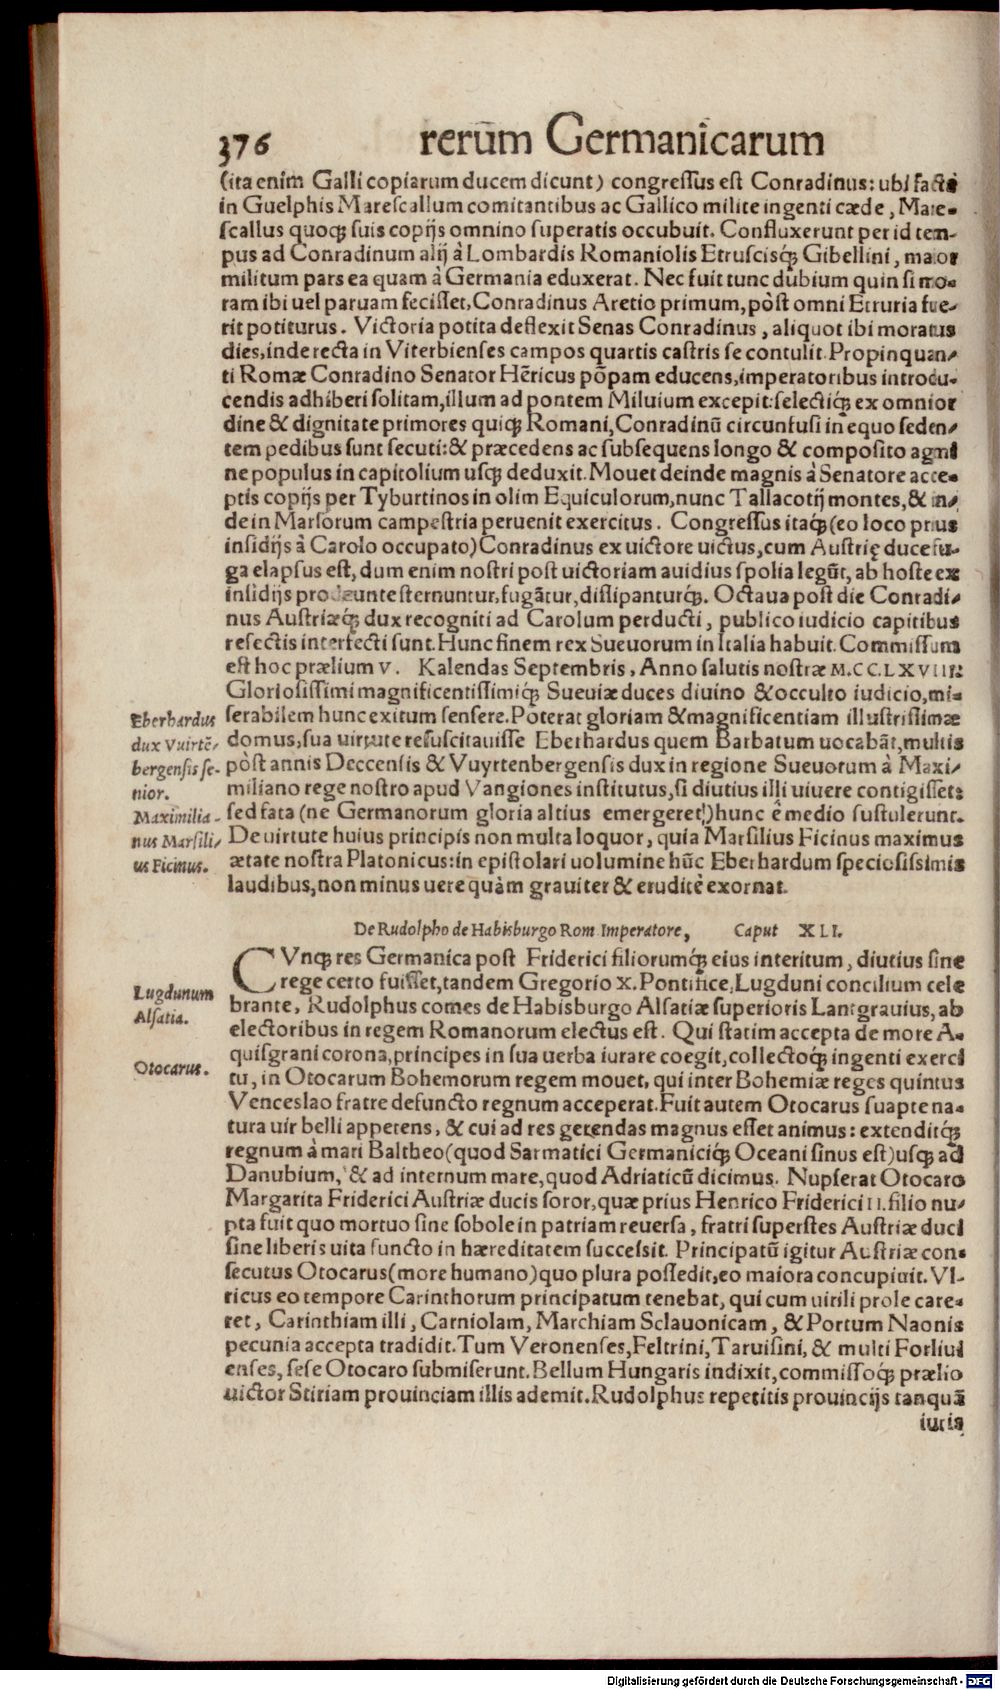 376 rerūm Germanicarum
(ita enim Galli copiarum ducem dicunt) congressus est Conradinus: ubi facta
in Guelphis Marescallum comitantibus ac Gallico milite ingenti cæde, Mare-
scallus quoqꝫ suis copijs omnino superatis occubuit. Confluxerunt per id tem-
pus ad Conradinum alij à Lombardis Romaniolis Etruscisqꝫ Gibellini, maior
militum pars ea quam à Germania eduxerat. Nec fuit tunc dubium quin si mo-
ram ibi uel paruam fecisset, Conradinus Aretio primum, pòst omni Etruria fue-
rit potiturus. Victoria potita deflexit Senas Conradinus, aliquot ibi moratus
dies, inde recta in Viterbienses campos quartis castris se contulit. Propinquan-
ti Romæ Conradino Senator Hēricus pōpam educens, imperatoribus introdu-
cendis adhiberi solitam, illum ad pontem Miluium excepit: selectiqꝫ ex omni or
dine & dignitate primores quiqꝫ Romani, Conradinū circunfusi in equo seden-
tem pedibus sunt secuti: & præcedens ac subsequens longo & composito agmi
ne populus in capitolium usqꝫ deduxit. Mouet deinde magnis à Senatore acce-
ptis copijs per Tyburtinos in olim Equiculorum, nunc Tallacotij montes, & in-
de in Marsorum campestria peruenit exercitus. Congressus itaqꝫ (eo loco prius
insidijs à Carolo occupato) Conradinus ex uictore uictus, cum Austrię duce fu-
ga elapsus est, dum enim nostri post uictoriam auidius spolia legūt, ab hoste ex
insidijs prodeunte sternuntur, fugātur, dissipanturqꝫ. Octaua post die Conradi-
nus Austriæqꝫ dux recogniti ad Carolum perducti, publico iudicio capitibus
resectis interfecti sunt. Hunc finem rex Sueuorum in Italia habuit. Commissum
est hoc prælium V. Kalendas Septembris, Anno salutis nostræ M.CC.LXVIII:
Gloriosissimi magnificentissimiqꝫ Sueuiæ duces diuino & occulto iudicio, mi-
serabilem hunc exitum sensere. Poterat gloriam & magnificentiam illustrissimæ
domus, sua uirtute resuscitauisse Eberhardus quem Barbatum uocabāt, multis
pòst annis Deccensis & Vuyrtenbergensis dux in regione Sueuorum à Maxi-
miliano rege nostro apud Vangiones institutus, si diutius illi uiuere contigisset:
sed fata (ne Germanorum gloria altius emergeret) hunc ē medio sustulerunt.
De uirtute huius principis non multa loquor, quia Marsilius Ficinus maximus
ætate nostra Platonicus: in epistolari uolumine hūc Eberhardum speciosissimis
laudibus, non minus uere quàm grauiter & eruditè exornat.
Eberhardus
dux Vuirtē-
bergensis se-
nior.
Maximilia-
nus Marsili-
us Ficinus.
De Rudolpho de Habisburgo Rom Imperatore, Caput XLI.
CVnqꝫ res Germanica post Friderici filiorumqꝫ eius interitum, diutius sine
rege certo fuisset, tandem Gregorio X. Pontifice, Lugduni concilium cele
brante, Rudolphus comes de Habisburgo Alsatiæ superioris Lantgrauius, ab
electoribus in regem Romanorum electus est. Qui statim accepta de more A-
quisgrani corona, principes in sua uerba iurare coegit, collectoqꝫ ingenti exerci
tu, in Otocarum Bohemorum regem mouet, qui inter Bohemiæ reges quintus
Venceslao fratre defuncto regnum acceperat. Fuit autem Otocarus suapte na-
tura uir belli appetens, & cui ad res gerendas magnus esset animus: extenditqꝫ
regnum à mari Baltheo (quod Sarmatici Germaniciqꝫ Oceani sinus est) usqꝫ ad
Danubium, & ad internum mare, quod Adriaticū dicimus. Nupserat Otocaro
Margarita Friderici Austriæ ducis soror, quæ prius Henrico Friderici II. filio nu-
pta fuit quo mortuo sine sobole in patriam reuersa, fratri superstes Austriæ duci
sine liberis uita functo in hæreditatem successit. Principatū igitur Austriæ con-
secutus Otocarus (more humano) quo plura possedit, eo maiora concupiuit. Vl-
ricus eo tempore Carinthorum principatum tenebat, qui cum uirili prole care-
ret, Carinthiam illi, Carniolam, Marchiam Sclauonicam, & Portum Naonis
pecunia accepta tradidit. Tum Veronenses, Feltrini, Taruisini, & multi Forliui
enses, sese Otocaro submiserunt. Bellum Hungaris indixit, commissoqꝫ prælio
uictor Stiriam prouinciam illis ademit. Rudolphus repetitis prouincijs tanquā
iuris
Lugdunum
Alsatia.
Otocarus.
Digitalisierung gefördert durch die Deutsche Forschungsgemeinschaft - DFG